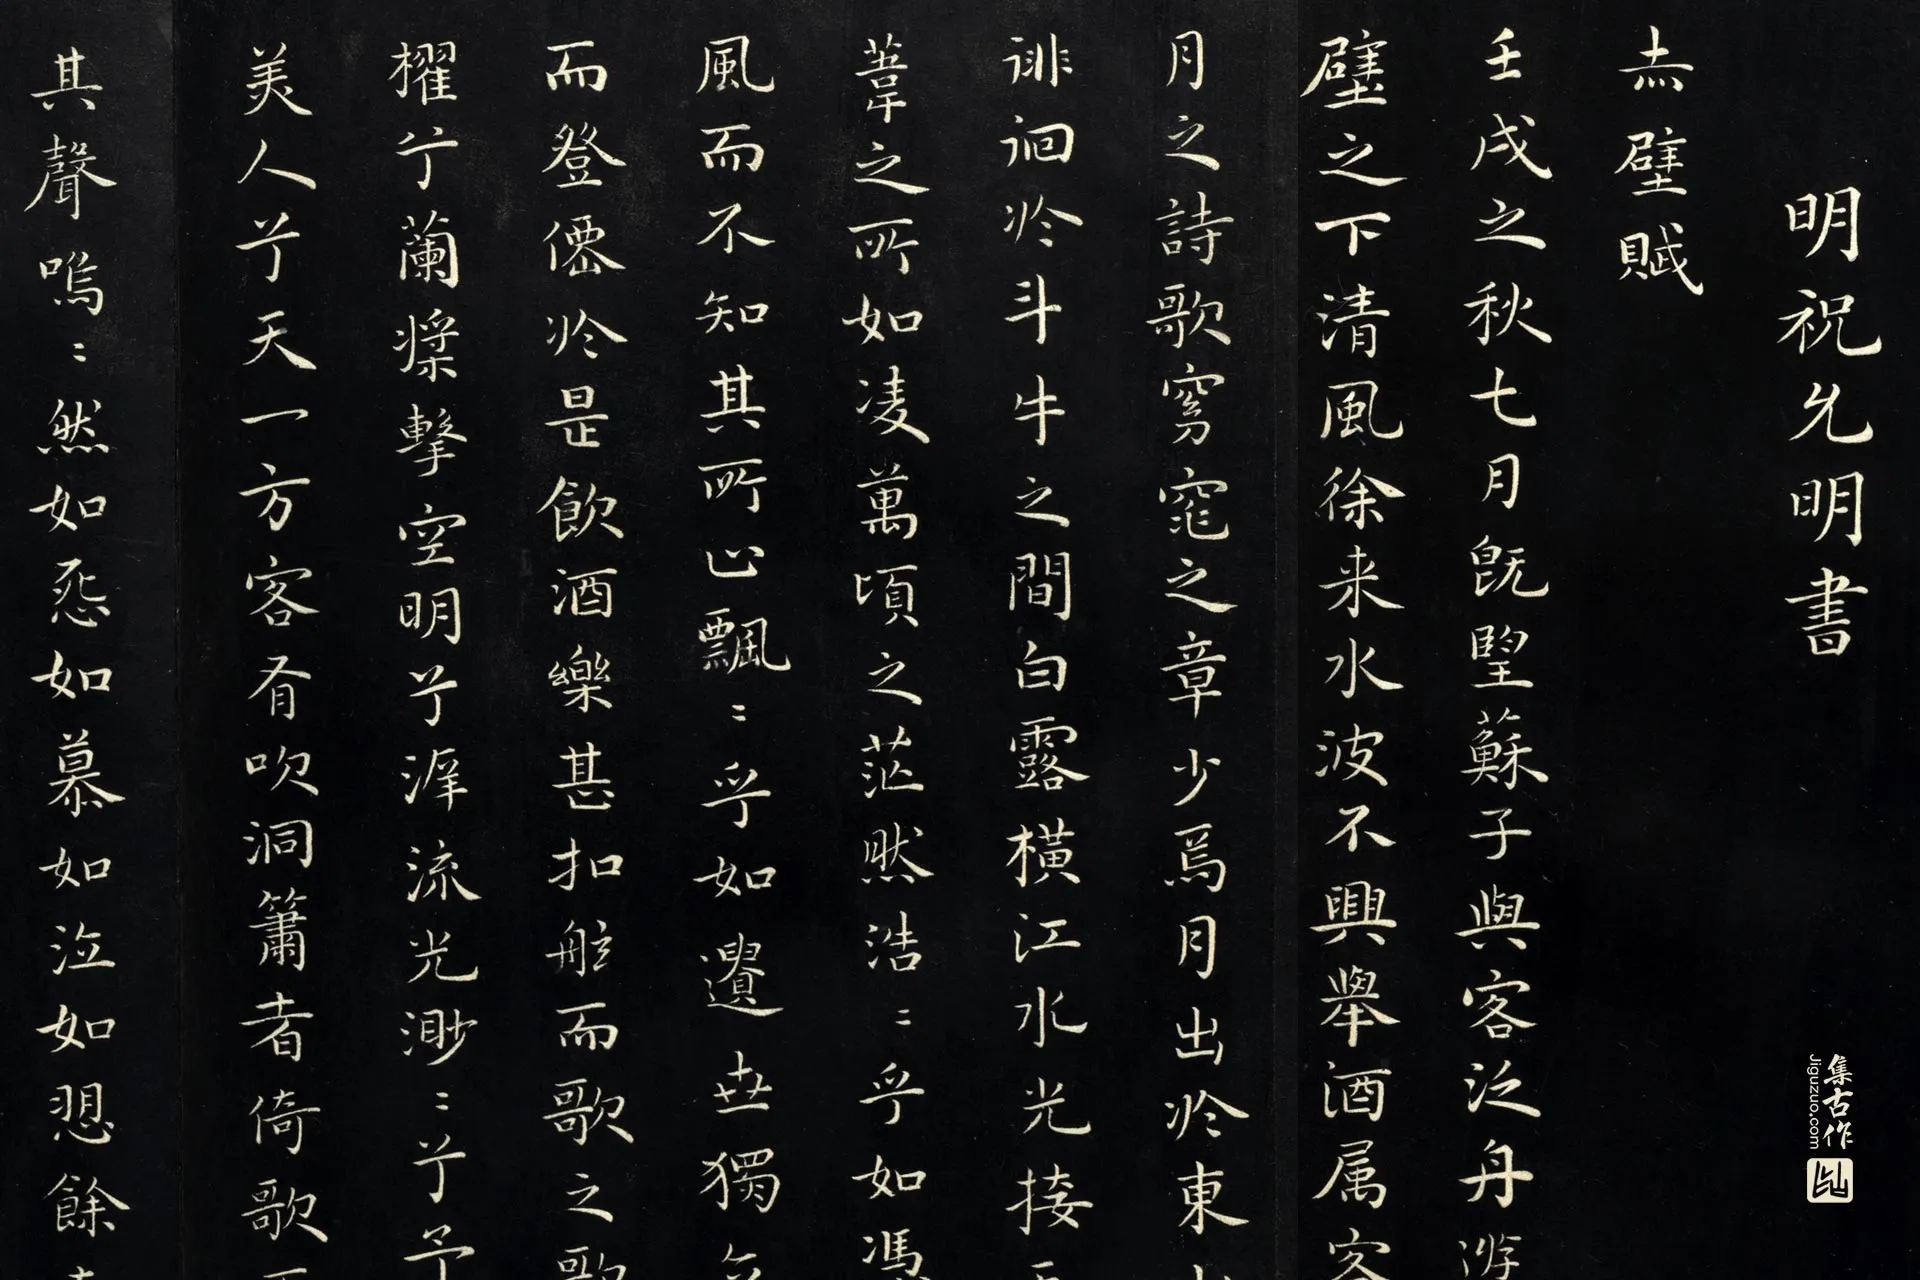 明祝允明書
赤壁賦
壬戌之秋七月既望蘇子與客泛舟游
壁之下清風徐来水波不興舉酒属客
月之詩歌窈窕之章少焉月出於東
徘徊於斗牛之間白露橫江水光接
葦之所如凌萬頃之茫然浩〻乎如馮
風而不知其所止飄〻乎如遺世獨
而登僊於是飲酒樂甚扣舷而歌之歌
櫂兮蘭槳擊空明兮泝流光渺〻兮予
美人兮天一方客有吹洞簫者倚歌而
其聲嗚〻然如怨如慕如泣如愬餘
集古作
Jiguzuo.com